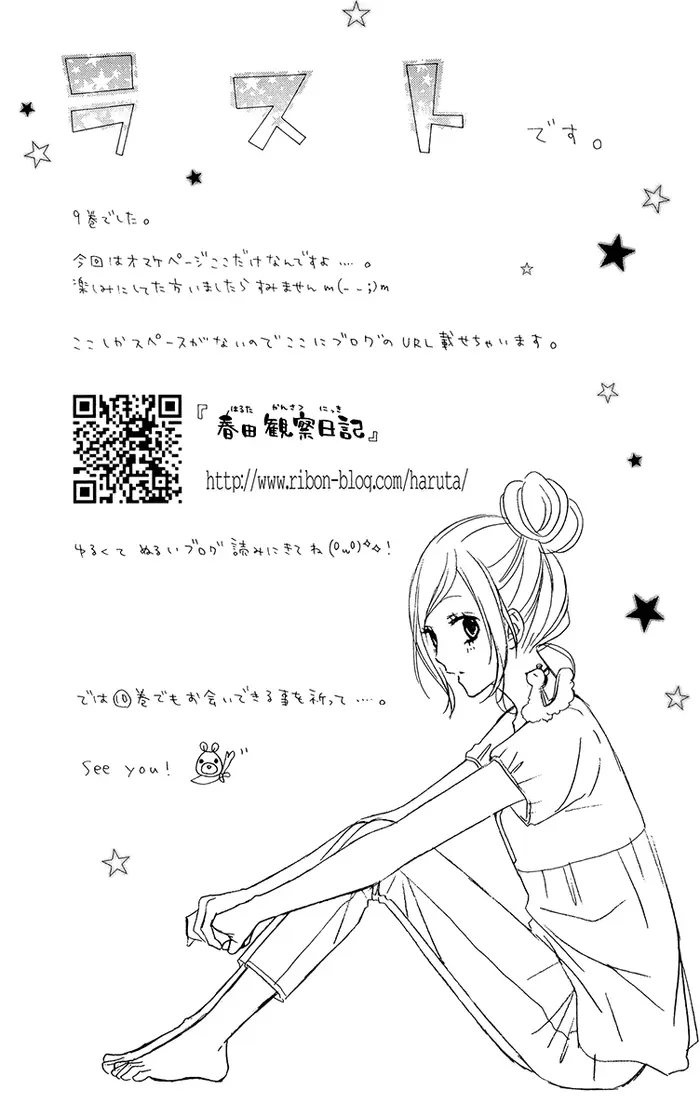 ラスト です。
9巻でした。
今回はオマケページここだけなんですよ….。
楽しみにしてた方いましたらすみませんm(--;)m
ここしかスペースがないのでここにブログのURL載せちゃいます。
はるた かんさつ にっき
『春田観察日記』
http://www.ribon-blog.com/haruta/
ゆるくて ぬるいブログ 読みにきてね(0ω0)✧✧!
では⑩巻でもお会いできる事を祈って….。
See you!